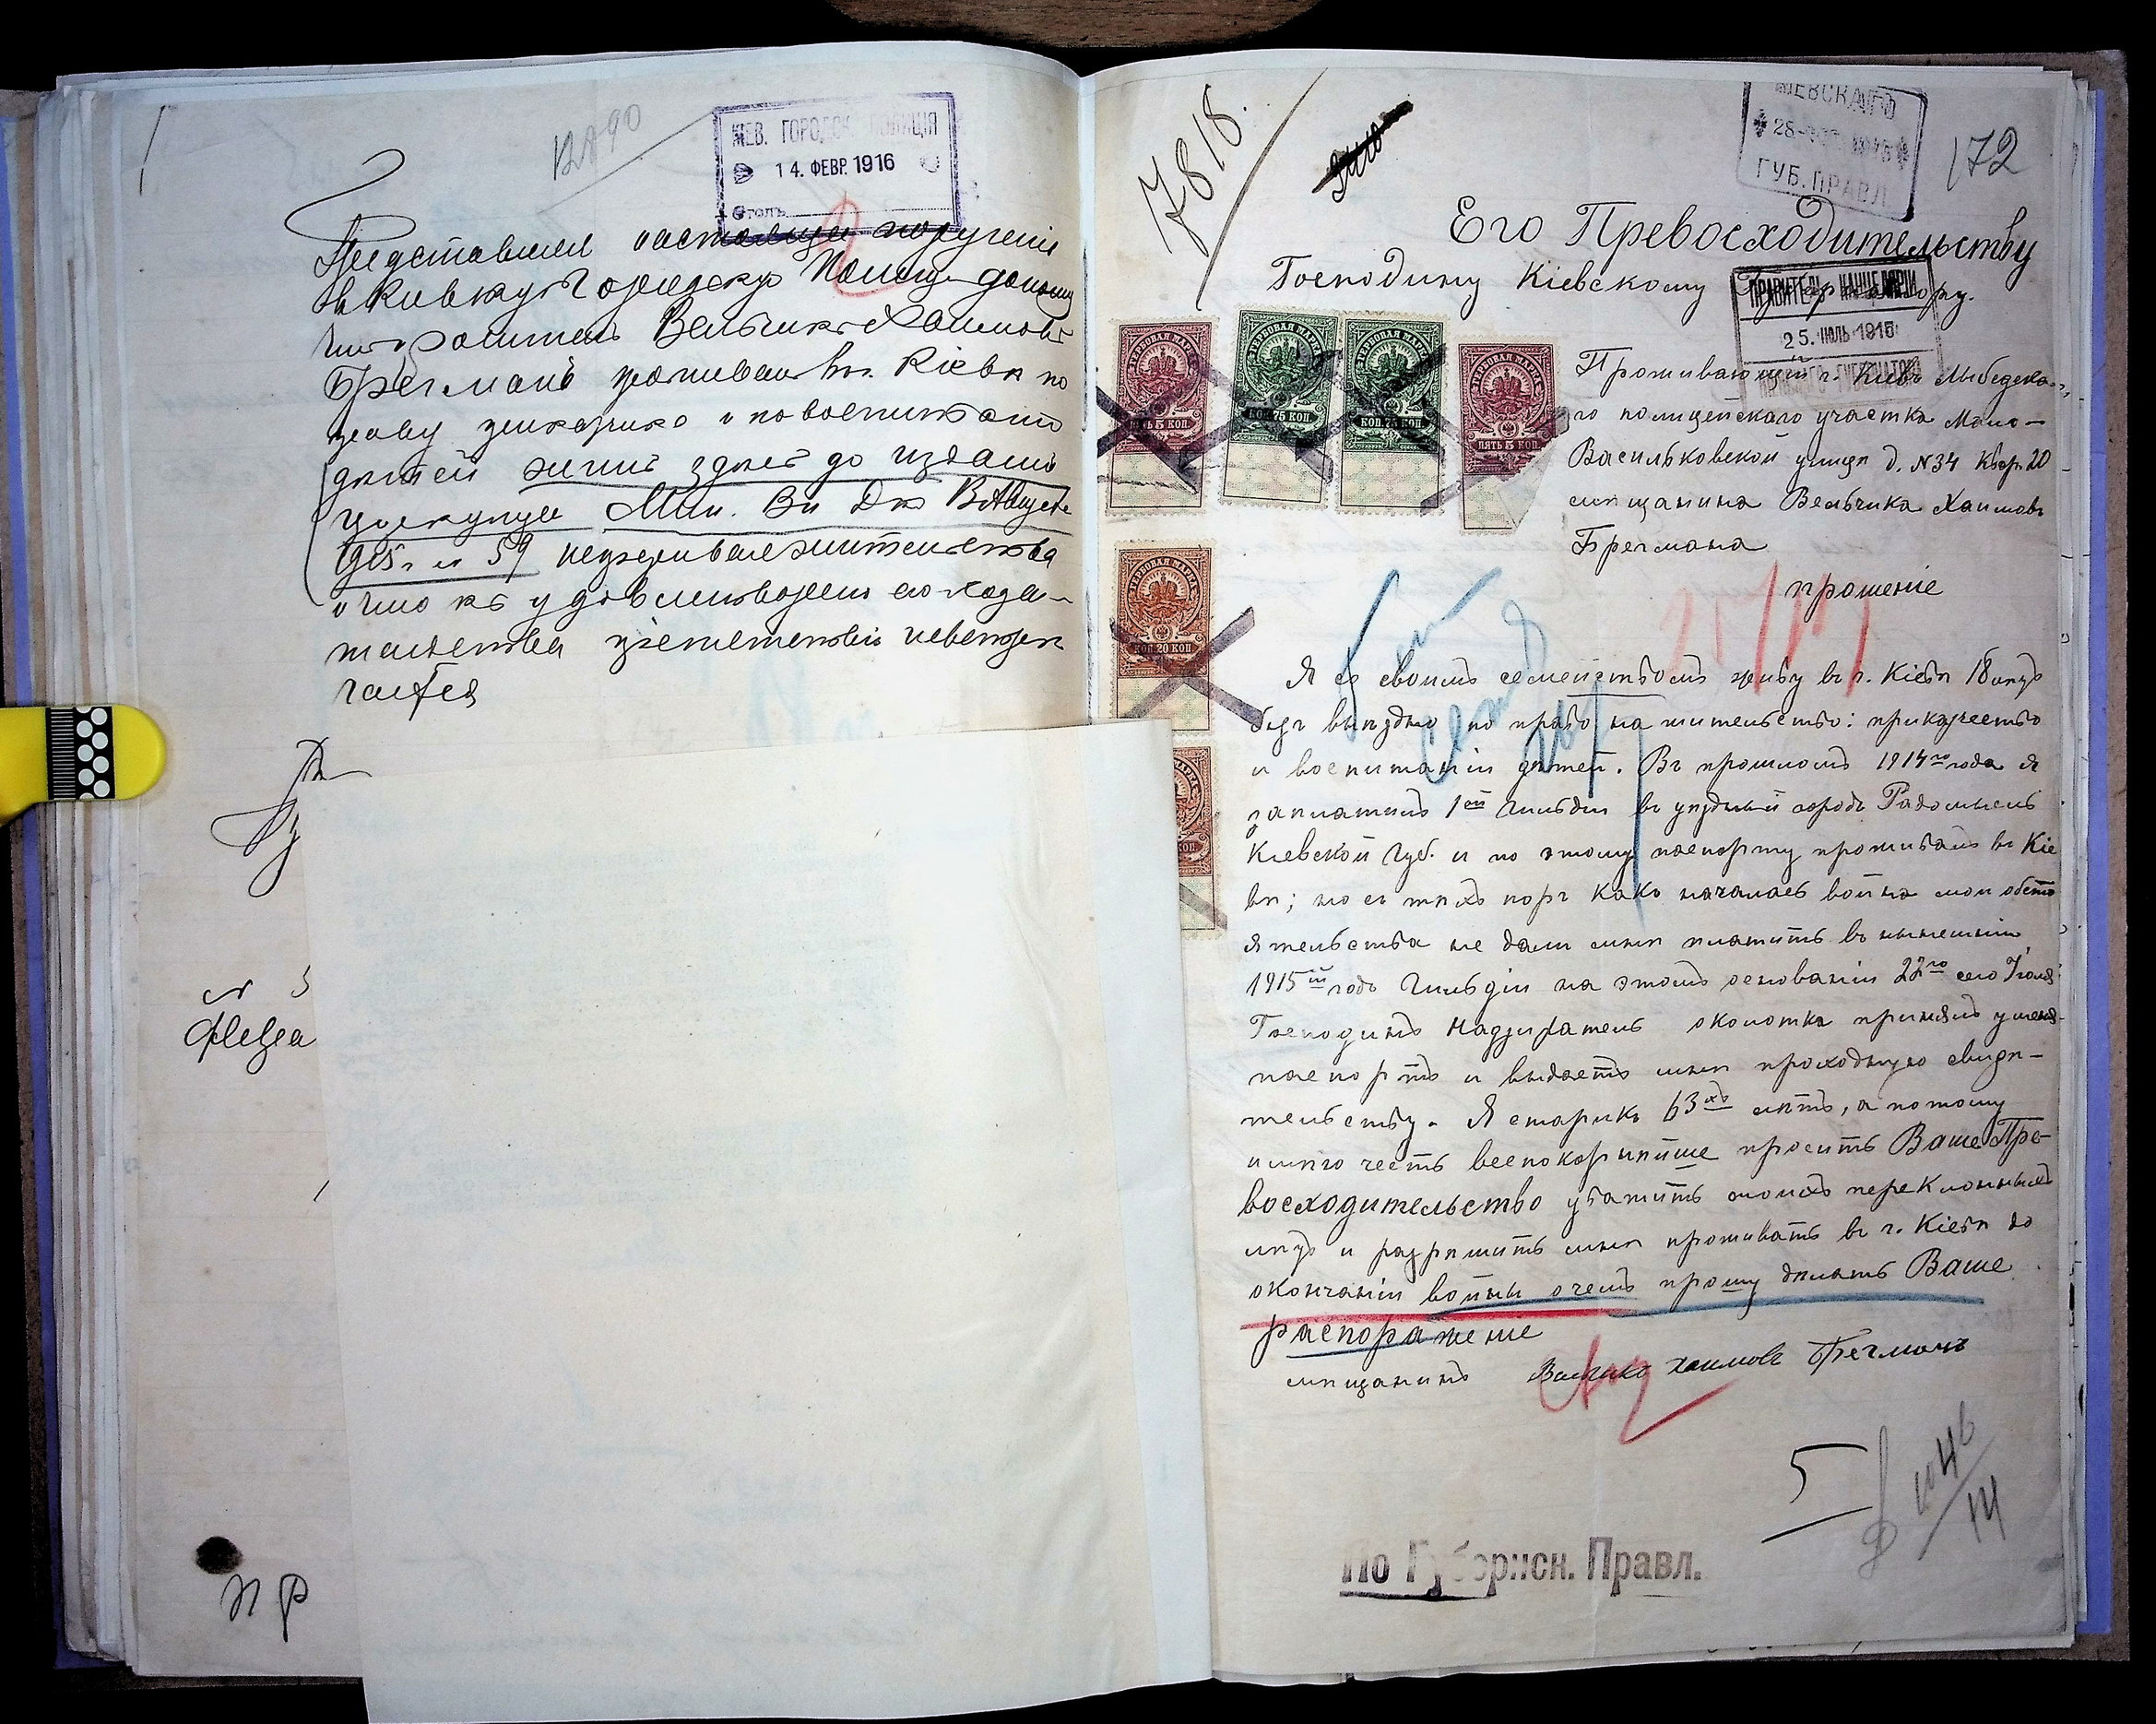 12890
КІЕВ. ГОРОДСК. ПОЛИЦІЯ
14. ФЕВР. 1916
Столъ
Представляя настоящее порученіе
въ Кіевскую Городскую Полицію доношу
что проситель Вельчикъ Хаимовъ
Брегманъ проживаетъ въ г. Кіевѣ по
праву и по воспитанію
дѣтей живъ здѣсь до изданія
циркуляра Мин. Вн. Дѣлъ
1915 г. № 59 жительства
и что къ удовлетворенію его хода-
тайства препятствій не встрѣ-
чается
ПР
7818.
КІЕВСКАГО
ГУБ. ПРАВЛ.
172
Его Превосходительству
Господину Кіевскому Губернатору.
ПРАВИТЕЛЬ КАНЦЕЛЯРІИ
25. ІЮЛЬ 1915
КІЕВСКАГО ГУБЕРНАТОРА
ГЕРБОВАЯ МАРКА
ПЯТЬ 5 КОП.
ГЕРБОВАЯ МАРКА
КОП. 75 КОП.
ГЕРБОВАЯ МАРКА
КОП. 75 КОП.
ГЕРБОВАЯ МАРКА
ПЯТЬ 5 КОП.
ГЕРБОВАЯ МАРКА
КОП. 20 КОП.
Проживающій г. Кіевъ Лыбедска-
го полицейскаго участка Мало-
Васильковской улицѣ д. №34 квар. 20
мѣщанина Вельчика Хаимовъ
Брегмана
прошеніе
Я съ своимъ семействомъ живу въ г. Кіевѣ 18 лѣтъ
безъ выѣздно по право на жительство: приказчество
и воспитаніи дѣтей. Въ прошломъ 1914го года я
заплатилъ 1ой Гильдіи въ уѣздный городъ Радомысль
Кіевской Губ. и по этому паспорту проживалъ въ Кіе
вѣ; но съ тѣхъ поръ какъ началась война мои обсто
ятельства не дали мнѣ платить въ нынешнім
1915ій годъ Гильдіи на этомъ основаніи 22го сего Іюля
Господинъ Надзиратель околотка принялъ у меня
паспортъ и выдаетъ мнѣ проходную свидѣ-
тельству. Я старикъ 63хъ лѣтъ, а потому
имѣю честь всепокорнѣйше просить Ваше Пре-
восходительство уважить моихъ переклонныхъ
лѣтъ и разрѣшить мнѣ проживать въ г. Кіевѣ до
окончаніи войны очень прошу дѣлать Ваше
распоряженіе
мѣщанинъ Вельчикъ Хаимовъ Брегманъ
5
По Губернск. Правл.